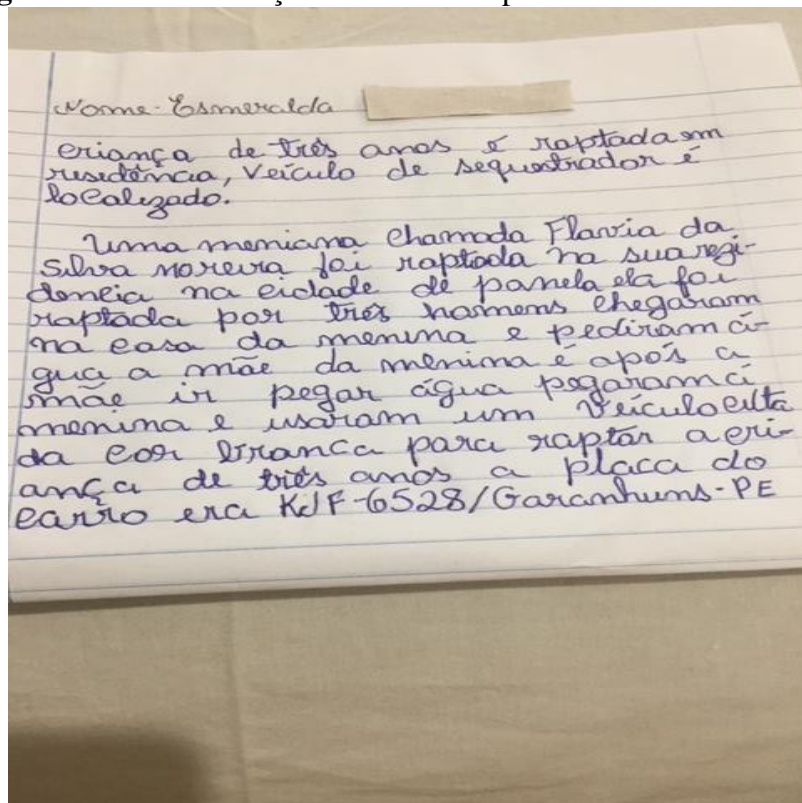 Nome-Esmeralda
criança de três anos é raptada em
residência, veículo de sequestrador é
localizado.
Uma meniana chamada Flavia da
Silva moreira foi raptada na sua regi-
doneia na cidade de panela ela foi
raptada por três homens chegaram
na casa da menina e pediram á-
gua a mãe da menina é após a
mãe ir pegar água pegaram a
menina e usaram um veículo
da cor branca para raptar a cri-
ança de três anos a placa do
carro era KJF-6528/Garanhuns-PE